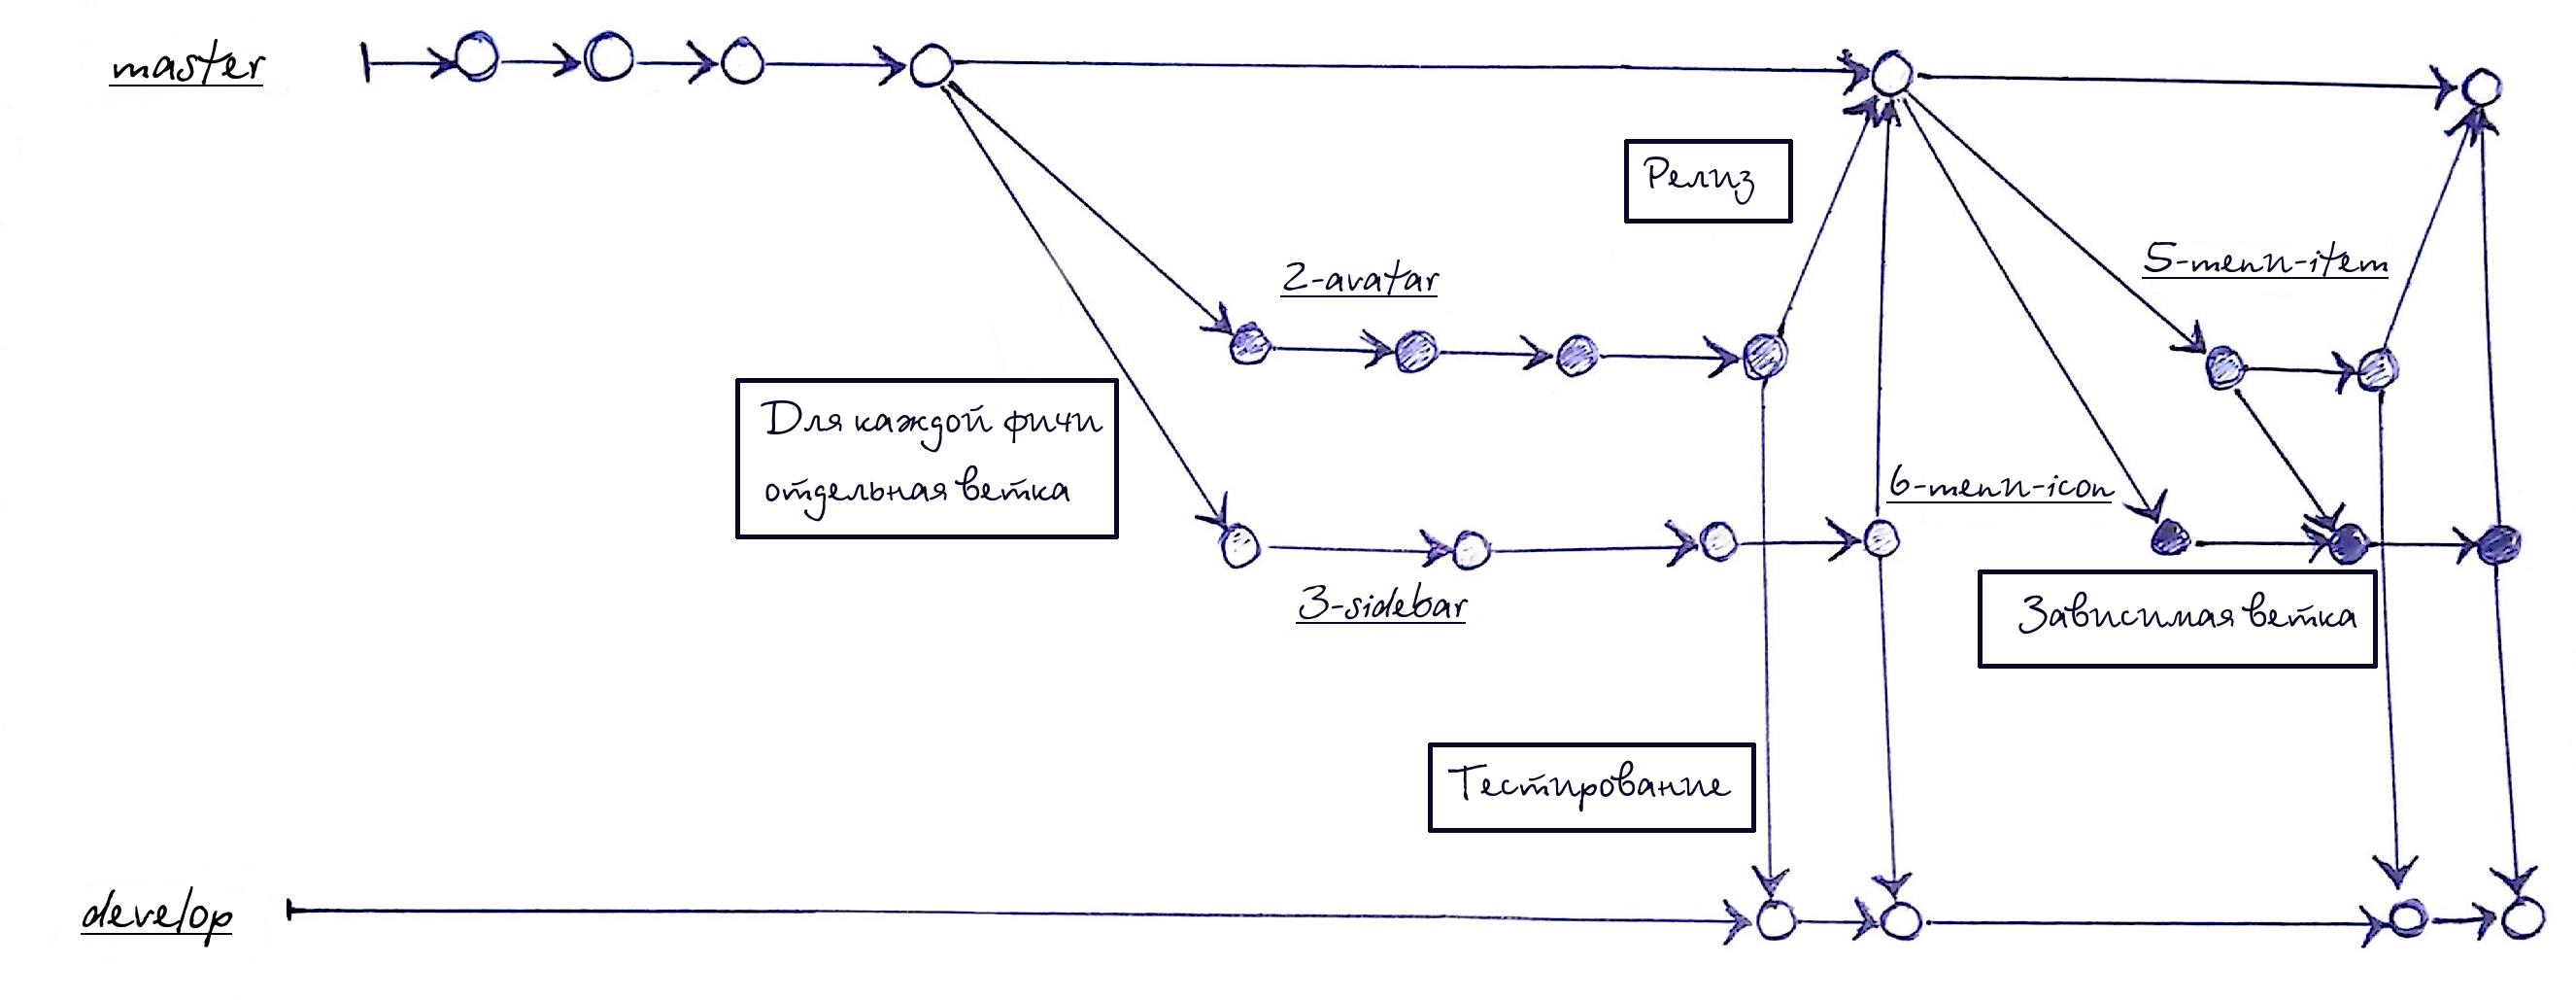 master
Релиз
5-menu-item
2-avatar
Для каждой фичи
отдельная ветка
6-menu-icon
3-sidebar
Зависимая ветка
Тестирование
develop